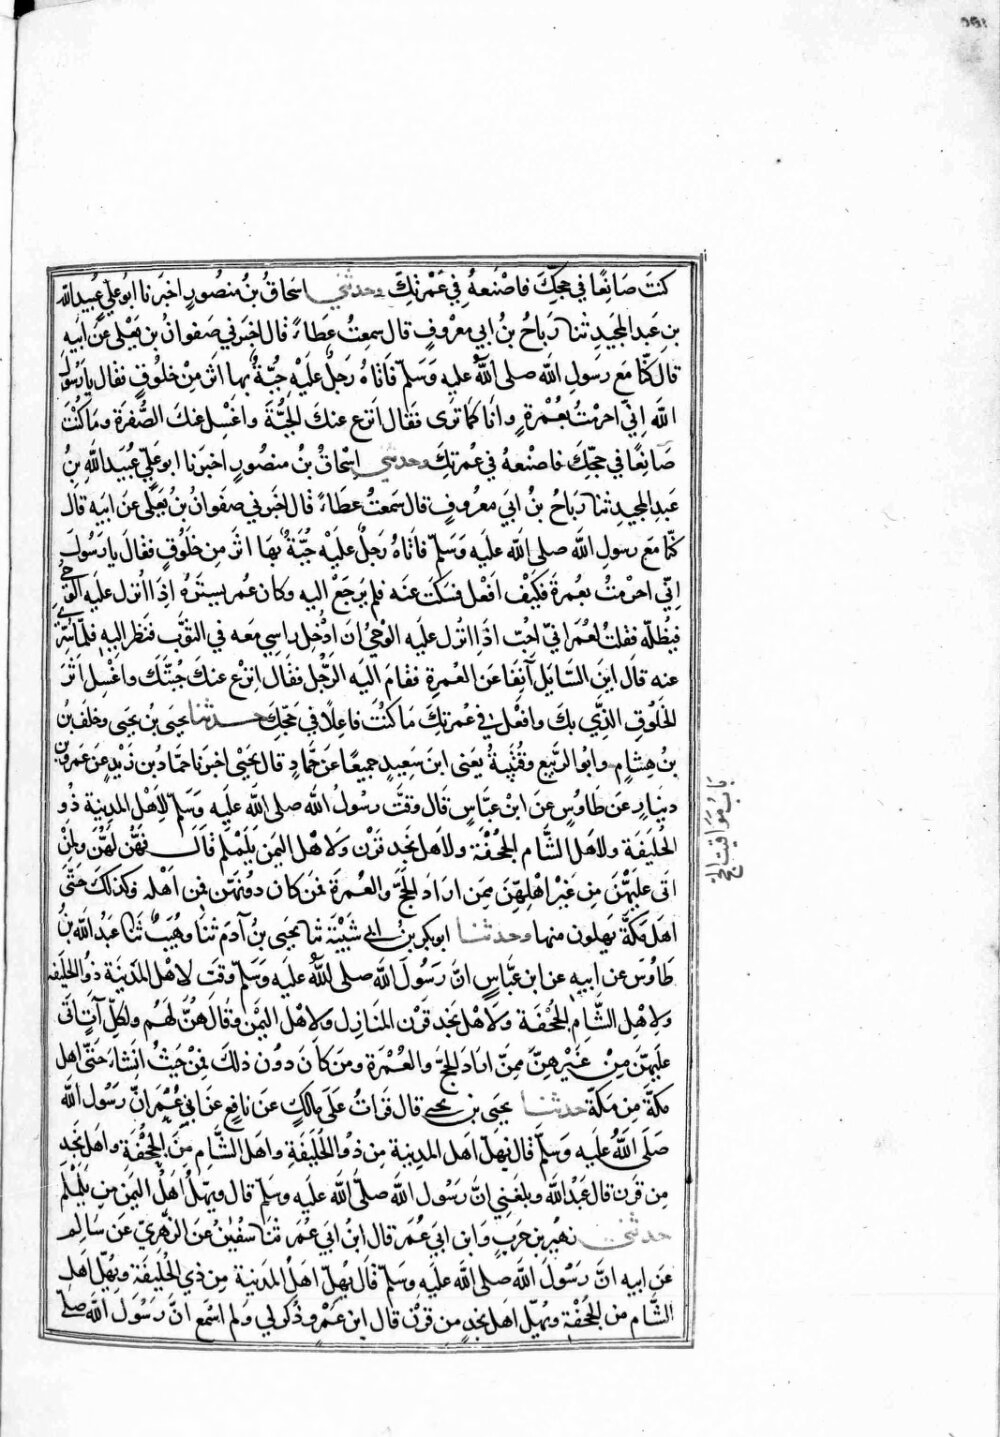 كنتَ صَانِعًا في حَجِّكَ فاصْنَعهُ في عُمْرَتِكَ وحدثني اسحاقُ بنُ منصُورٍ اخبرَنا ابُو عليٍّ عُبيدالله
بن عَبد المجَيدِ ثنا رَباحُ بنُ ابي مَعْروفٍ قال سمعتُ عَطاءً قال اخبَرني صَفوانُ بن يَعْلى عَن ابيَه
قال كنّا مَع رسولِ الله صلى الله عليه وَسَلّم فاتاهُ رَجلٌ علَيْه جُبّةٌ بها اثرٌ مِنْ خَلُوقٍ فقال يارَسُولَ
الله اِنّي احرمْتُ بعُمْرةٍ وانَا كما ترى فقال انزع عنكَ الجُبّةَ واغسِل عنكَ الصُّفرَة ومَا كُنْتَ
صَانِعًا في حَجّكَ فاصنعهُ في عُمرتِكَ وحدثني اِسْحاقُ بنُ منصُورٍ اخبَرنا ابو عَليٍّ عُبَيدُ اللهِ بنُ
عَبدِ المجيدِ ثنا رَباحُ بنُ ابي معروُفٍ قال سَمعتُ عطاءً قال اخبَرني صَفوانُ بنُ يَعلى عَن ابيَه قال
كنّا مَع رسولِ الله صلى الله عليَه وسَلّم فاتاهُ رَجُلٌ علَيْه جُبّةٌ بها اثر من خَلُوقٍ فقالَ يارَسُولَ
اِنّي احرمْتُ بعُمرَة فكَيْف افْعل فسكتَ عنَه فلم يَرجَعْ اليه وكان عُمر يستُرُه اِذَا اُنزل عليَه الوَحْيُ
فيُظلّه فقلتُ لعُمَر انّي احبّ اذَا انزل عليَه الوَحْيُ انَ ادْخِل راسِي معَه في الثوَّب فنظَر اليَه فلمّا سُرّيَ
عنه قال ايَن السَّائِل آنِفَا عَن العُمرةِ فقامَ اليَه الرّجُل فقَال اِنزعْ عنكَ جُبّتَكَ واغْسِل اثرَ
الخَلُوقِ الذِّي بِكَ وافعْل في عُمرتِكَ مَا كنُتَ فاعِلًا في حَجّكِ حدثنا يحيَى بنُ يحيَى وخلفُ بن
بن هِشامٍ وابوُ الرّبَيع وقُتَيبةُ يعنى ابنَ سَعِيدٍ جمِيعًا عَن حَمّادٍ قال يَحْيَى اخبرنا حمّادُ بن زَيْدٍ عَن عَمرِو بن
دينارٍ عَن طَاوُسٍ عَنِ ابْنِ عبّاسٍ قال وقَّتَ رسُولُ الله صلى الله عليَه وَسَلّم لِاَهْلِ المدِينةِ ذُو
الحُليفَة ولِاَهل الشَّام الجحُفَةَ ولِاَهل نَجد قَرْن ولِاهْل اليمَن يَلَمْلَم قَالَ فهُنّ لَهُنّ ولمَنْ
اتى علَيهِنَّ مِن غَيْر اَهْلِهِنَّ مِمَن ارَادَ الحَجّ والعُمرَةَ فمَن كان دُونَهنَ فمِن اَهْله وكذلكَ حَتّى
اهَل مَكّةَ يُهلون منها وحدثنا ابوبكِر بن ابي شَيْبَة ثنا يحيَى بنُ آدَم ثنا وُهَيبٌ ثنا عَبدُ الله بنُ
طَاوُسَ عن ابيِه عن ابن عَبّاسٍ انَّ رَسُولَ الله صلى الله عليَه وَسلّم وقت لاهْل المَدَينَة ذُو الحُلَيفه
ولاهْل الشّام الجُحْفَة ولَاهْل نَجد قَرْن المنَازِل ولَاهْل اليمَن وقَال هُنَّ لهُم ولكلّ آتٍ اَتَى
علَيهنّ مِنْ غَيْرِهنَّ مِمَّن ارَادَ الحَجّ والعُمْرَة ومَن كَان دُون ذلكَ فمِنْ حَيْثُ انشَاءَ حَتّى اهل
مكّةَ مِن مَكّةَ حدثنا يحيَى بن يحيى قال قراتُ عَلَى مالكٍ عَن نَافعٍ عَن ابن عُمَر انّ رَسُول الله
صَلَى اللهُ علَيه وَسَلَّم قال يُهلّ اهل المدينة مِن ذُو الحُلَيفَةِ واهل الشَّامِ مِنَ الجُحْفَةِ واهل نجَدِ
مِن قَرن قال عَبْدُالله وبلغني انّ رَسُول الله صلّى الله عليَه وسَلمّ قال ويُهلّ اهْلُ اليَمَن مِن يَلَمْلَم
حدثني زهُير بن حَربٍ وَابن ابي عُمَر قال ابنُ ابي عُمَر ثنا سُفيٰنُ عَن الزّهْريّ عَن سَالِم
عَن ابيه انّ رَسُولَ الله صلى الله عليَه وسَلّم قال يُهلّ اهْلُ المدَينةِ مِن ذي الحُليفَة ويُهلّ اهَل
الشّامِ من الجُحْفَة ويُهلّ اهل نجدٍ مِن قَرْن قال ابن عُمَر وذُكر لي ولم اسْمع انّ رَسُولَ الله صلى
باب مواقيت الحج